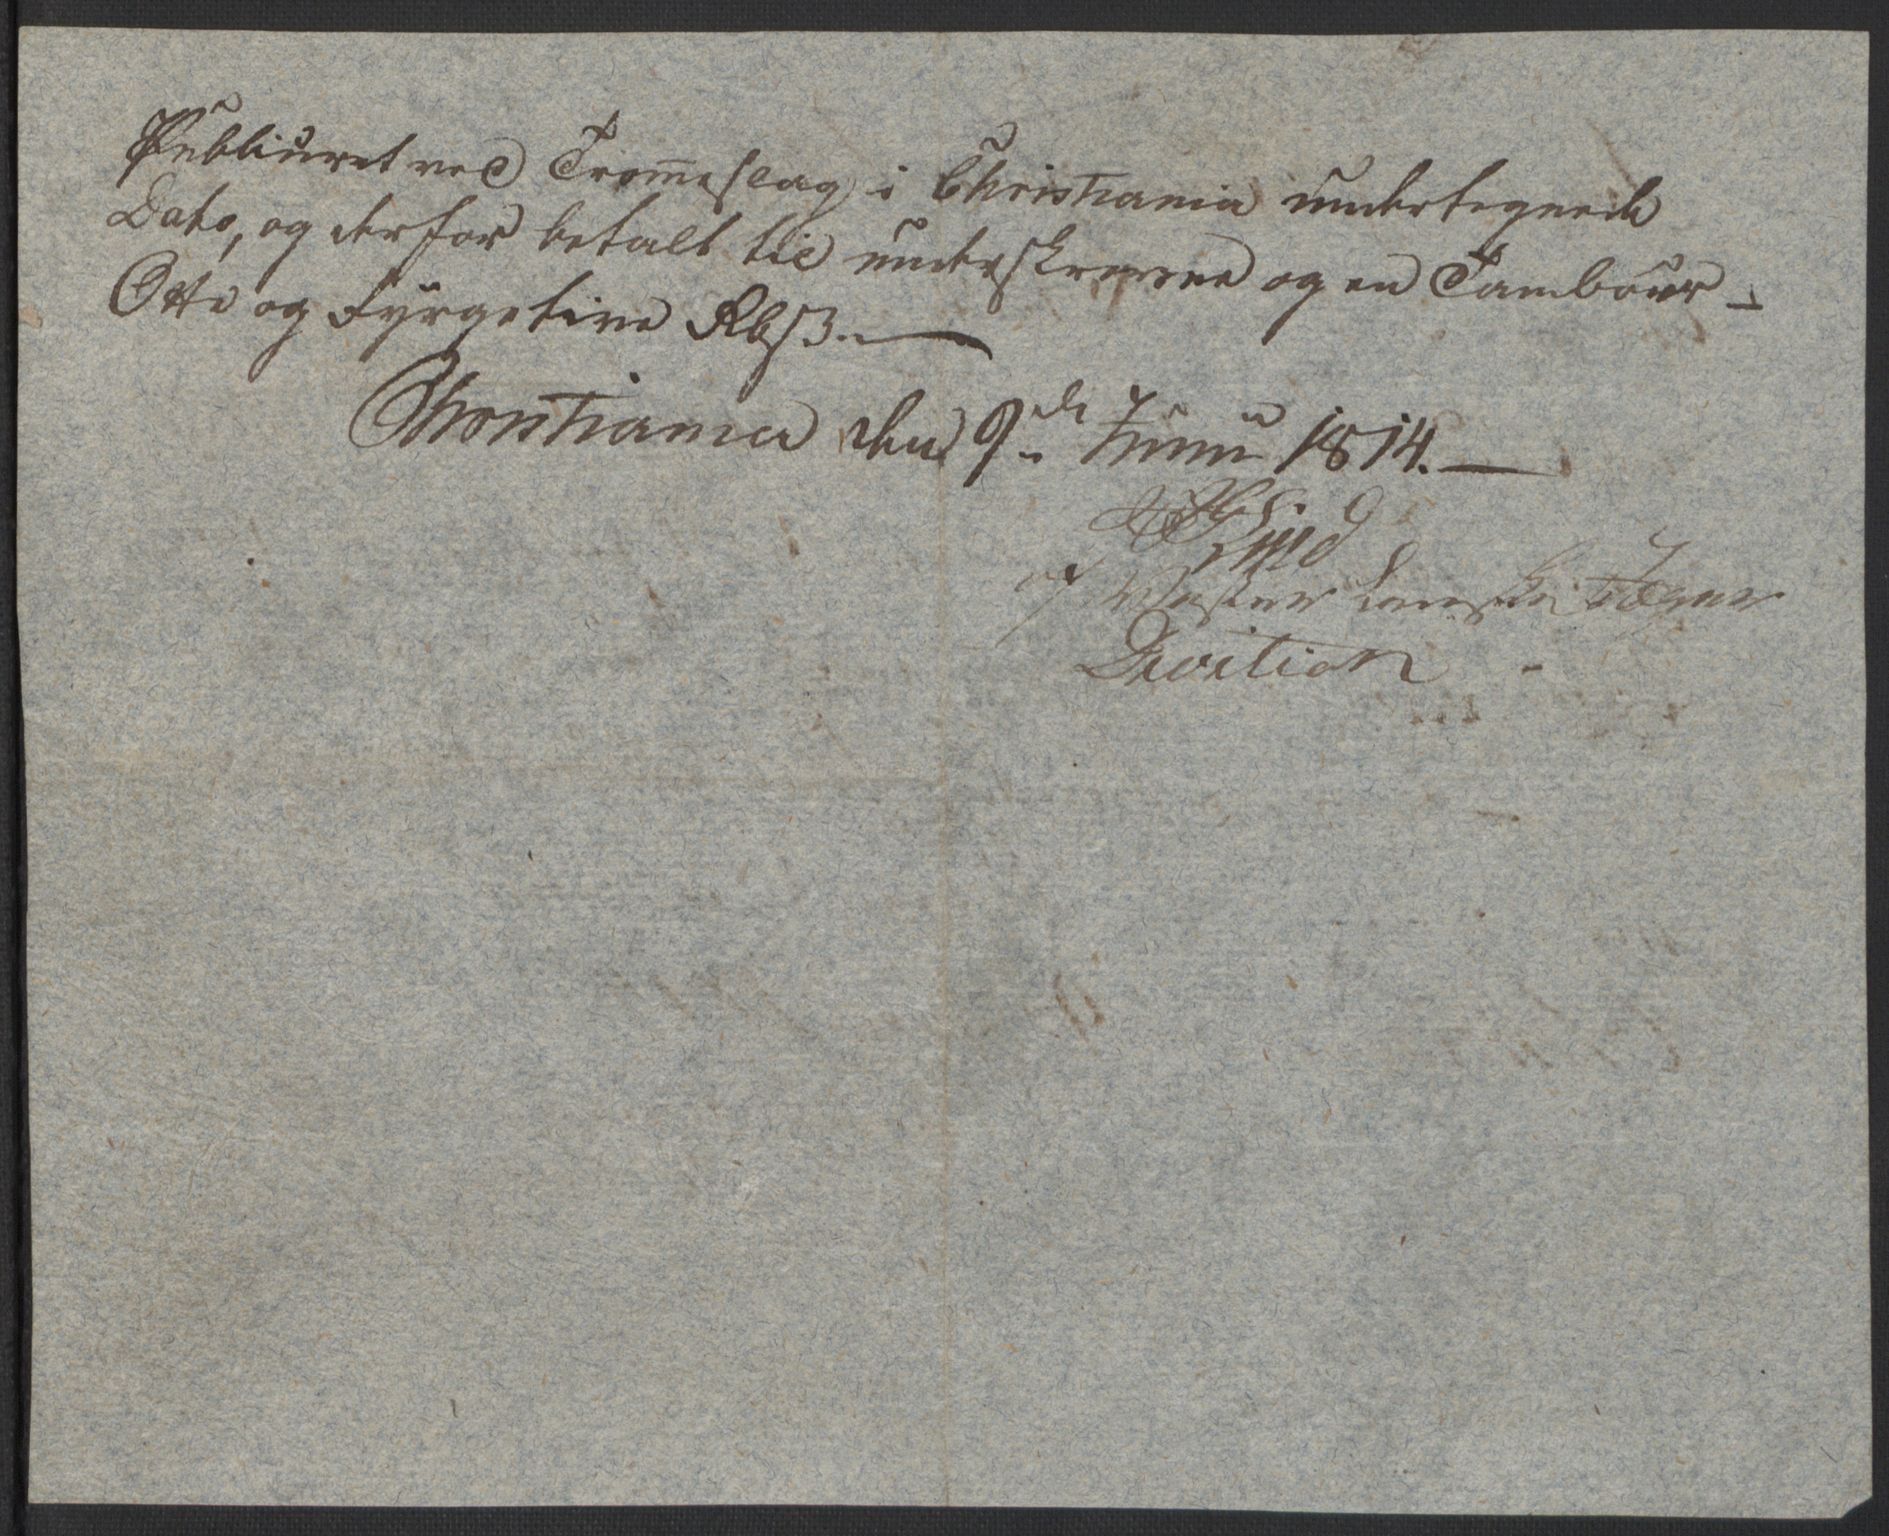 Publiceret ved Trom̄eslag i Christiania undertegnede
Dato, og derfor betalt til underskrevne og en Tambour –
Otte og Fyrgetive Rbsz. —
Christiania den 9de Junii 1814. —
Division